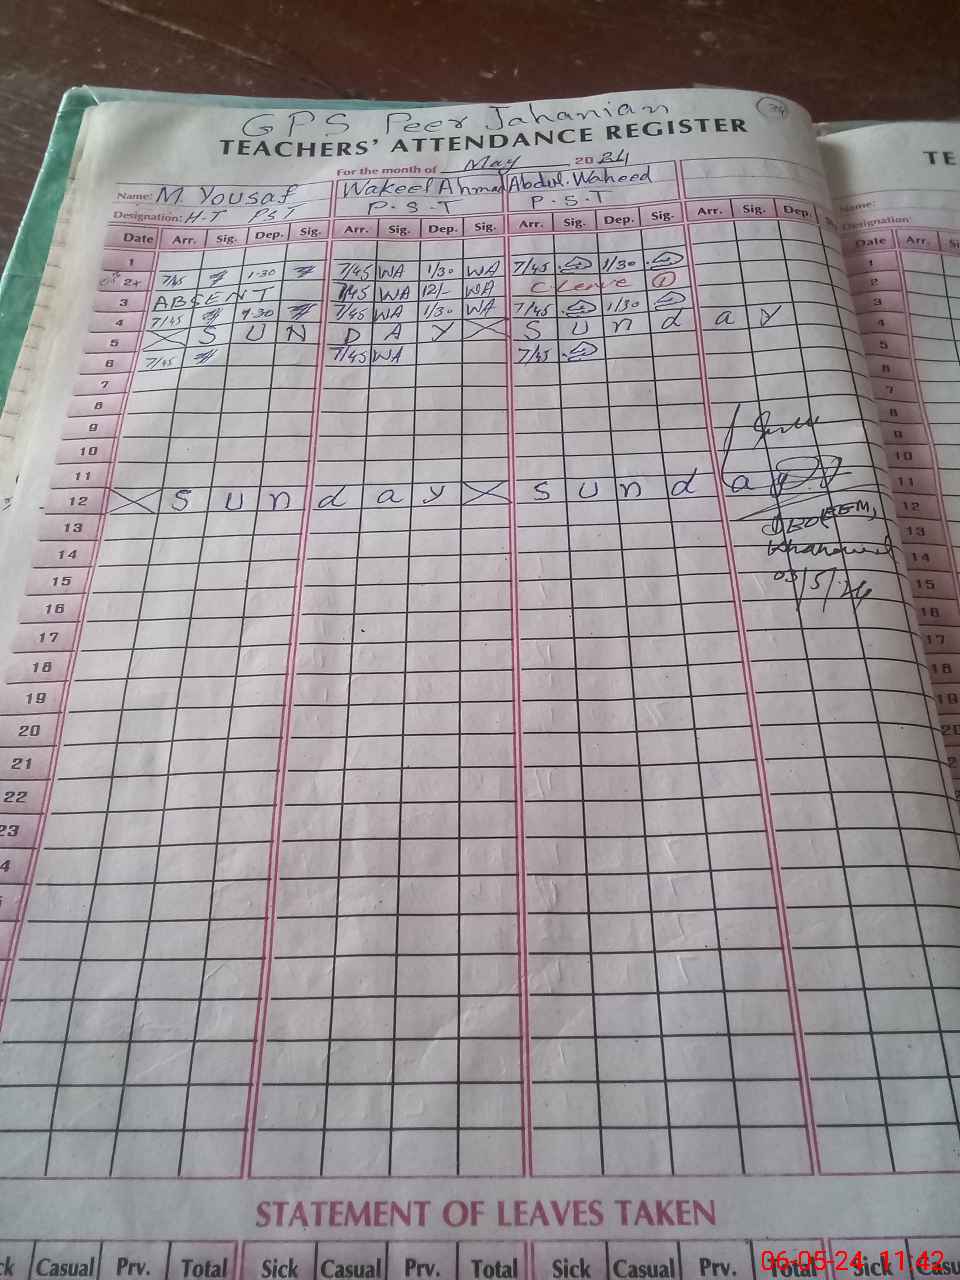 GPS Peer Jahanian
TEACHERS' ATTENDANCE REGISTER
For the month of May 20 24
Name: M. Yousaf Wakeel Ahmad Abdul. Waheed
Designation: H-T PST P.S.T P.S.T
Date Arr. Sig. Dep. Sig. Arr. Sig. Dep. Sig. Arr. Sig. Dep. Sig. Arr. Sig. Dep.
1
2 7/45 1-30 7/45 WA 1/30 WA 7/45 1/30
3 ABSENT 7/45 WA 12/- WA C Leave 1
4 7/45 1-30 7/45 WA 1/30 WA 7/45 1/30
5 S U N D A Y S u n d a y
6 7/45 7/45 WA 7/45
7
8
9
10
11
12 S u n d a y S u n d a y
13
14
15
16
17
18
19
20
21
22
23
4
03/5/24
STATEMENT OF LEAVES TAKEN
ck Casual Prv. Total Sick Casual Prv. Total Sick Casual Prv. Total Sick Casu
TE
Name:
Designation
Date Arr. Si
1
2
3
4
5
6
7
8
9
10
11
12
13
14
15
16
17
18
19
20
06-05-24 11:42